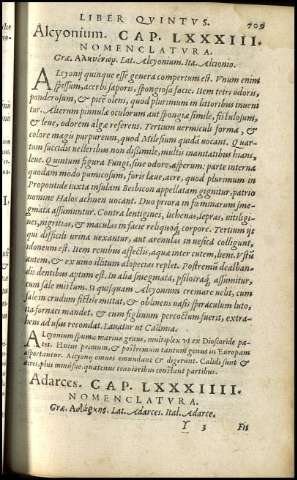 LIBER QVINTVS. 709
Alcyonium. CAP. LXXXIII.
NOMENCLATVRA.
Græ. Ἀλκυόνιον. Lat. Alcyonium. Ita. Alcionio.
ALcyonij quinque esse genera compertum est. Vnum enim
spissum, acerbi saporis, spongiosa facie. Item tetri odoris,
ponderosum, & piscē olens, quod plurimum in littoribus inueni
tur. Alterum pinnulæ oculorum aut spongiæ simile, fistulosum,
& leue, odorem algæ referens. Tertium vermiculi forma, &
colore magis purpureum, quod Milesium quidā vocant. Quar-
tum succidis velleribus non dissimile, multis inanitatibus hians,
leue. Quintum figura Fungi, sine odore, asperum: parte interna
quodam modo pumicosum, foris læue, acre, quod plurimum in
Propontide iuxta insulam Besbicon appellatam gignitur, patrio
nomine Halos achnen vocant. Duo priora in fœminarum sme-
gmata assumuntur. Contra lentigines, lichenas, lepras, vitiligi-
nes, nigrittas, & maculas in facie reliquoq; corpore. Tertium ijs
qui difficili vrina vexantur, aut arenulas in vesica colligunt,
idoneum est. Item renibus affectis, aqua inter cutem, lieni. Vstū
autem, & ex vino illitum alopecias replet. Postremū dealban-
dis dentibus aptum est. In alia smegmata, psilotraq́; assumitur,
cum sale mistum. Si quispiam Alcyonium cremare velit, cum
sale in crudum fictile mittat, & oblinens vasis spiraculum luto,
in fornaci mandet, & cum figlinum percoctum fuerit, extra-
hat ad vsus recondat. Lauatur vt Cadmia.
ALcyonium spuma maris genus, multiplex vt ex Dioscoride pa-
tet. Horum primum, & postremum tantum genus in Europam
asportantur. Alcyonij omnes emundant & digerunt. Calidi sunt &
acres, pius minusve, quatenus tenuioribus constant partibus.
Adarces. CAP. LXXXIIII.
NOMENCLATVRA.
Græ. Ἀδάρκης. Lat. Adarces. Ital. Adarce.
Y 3 Fit